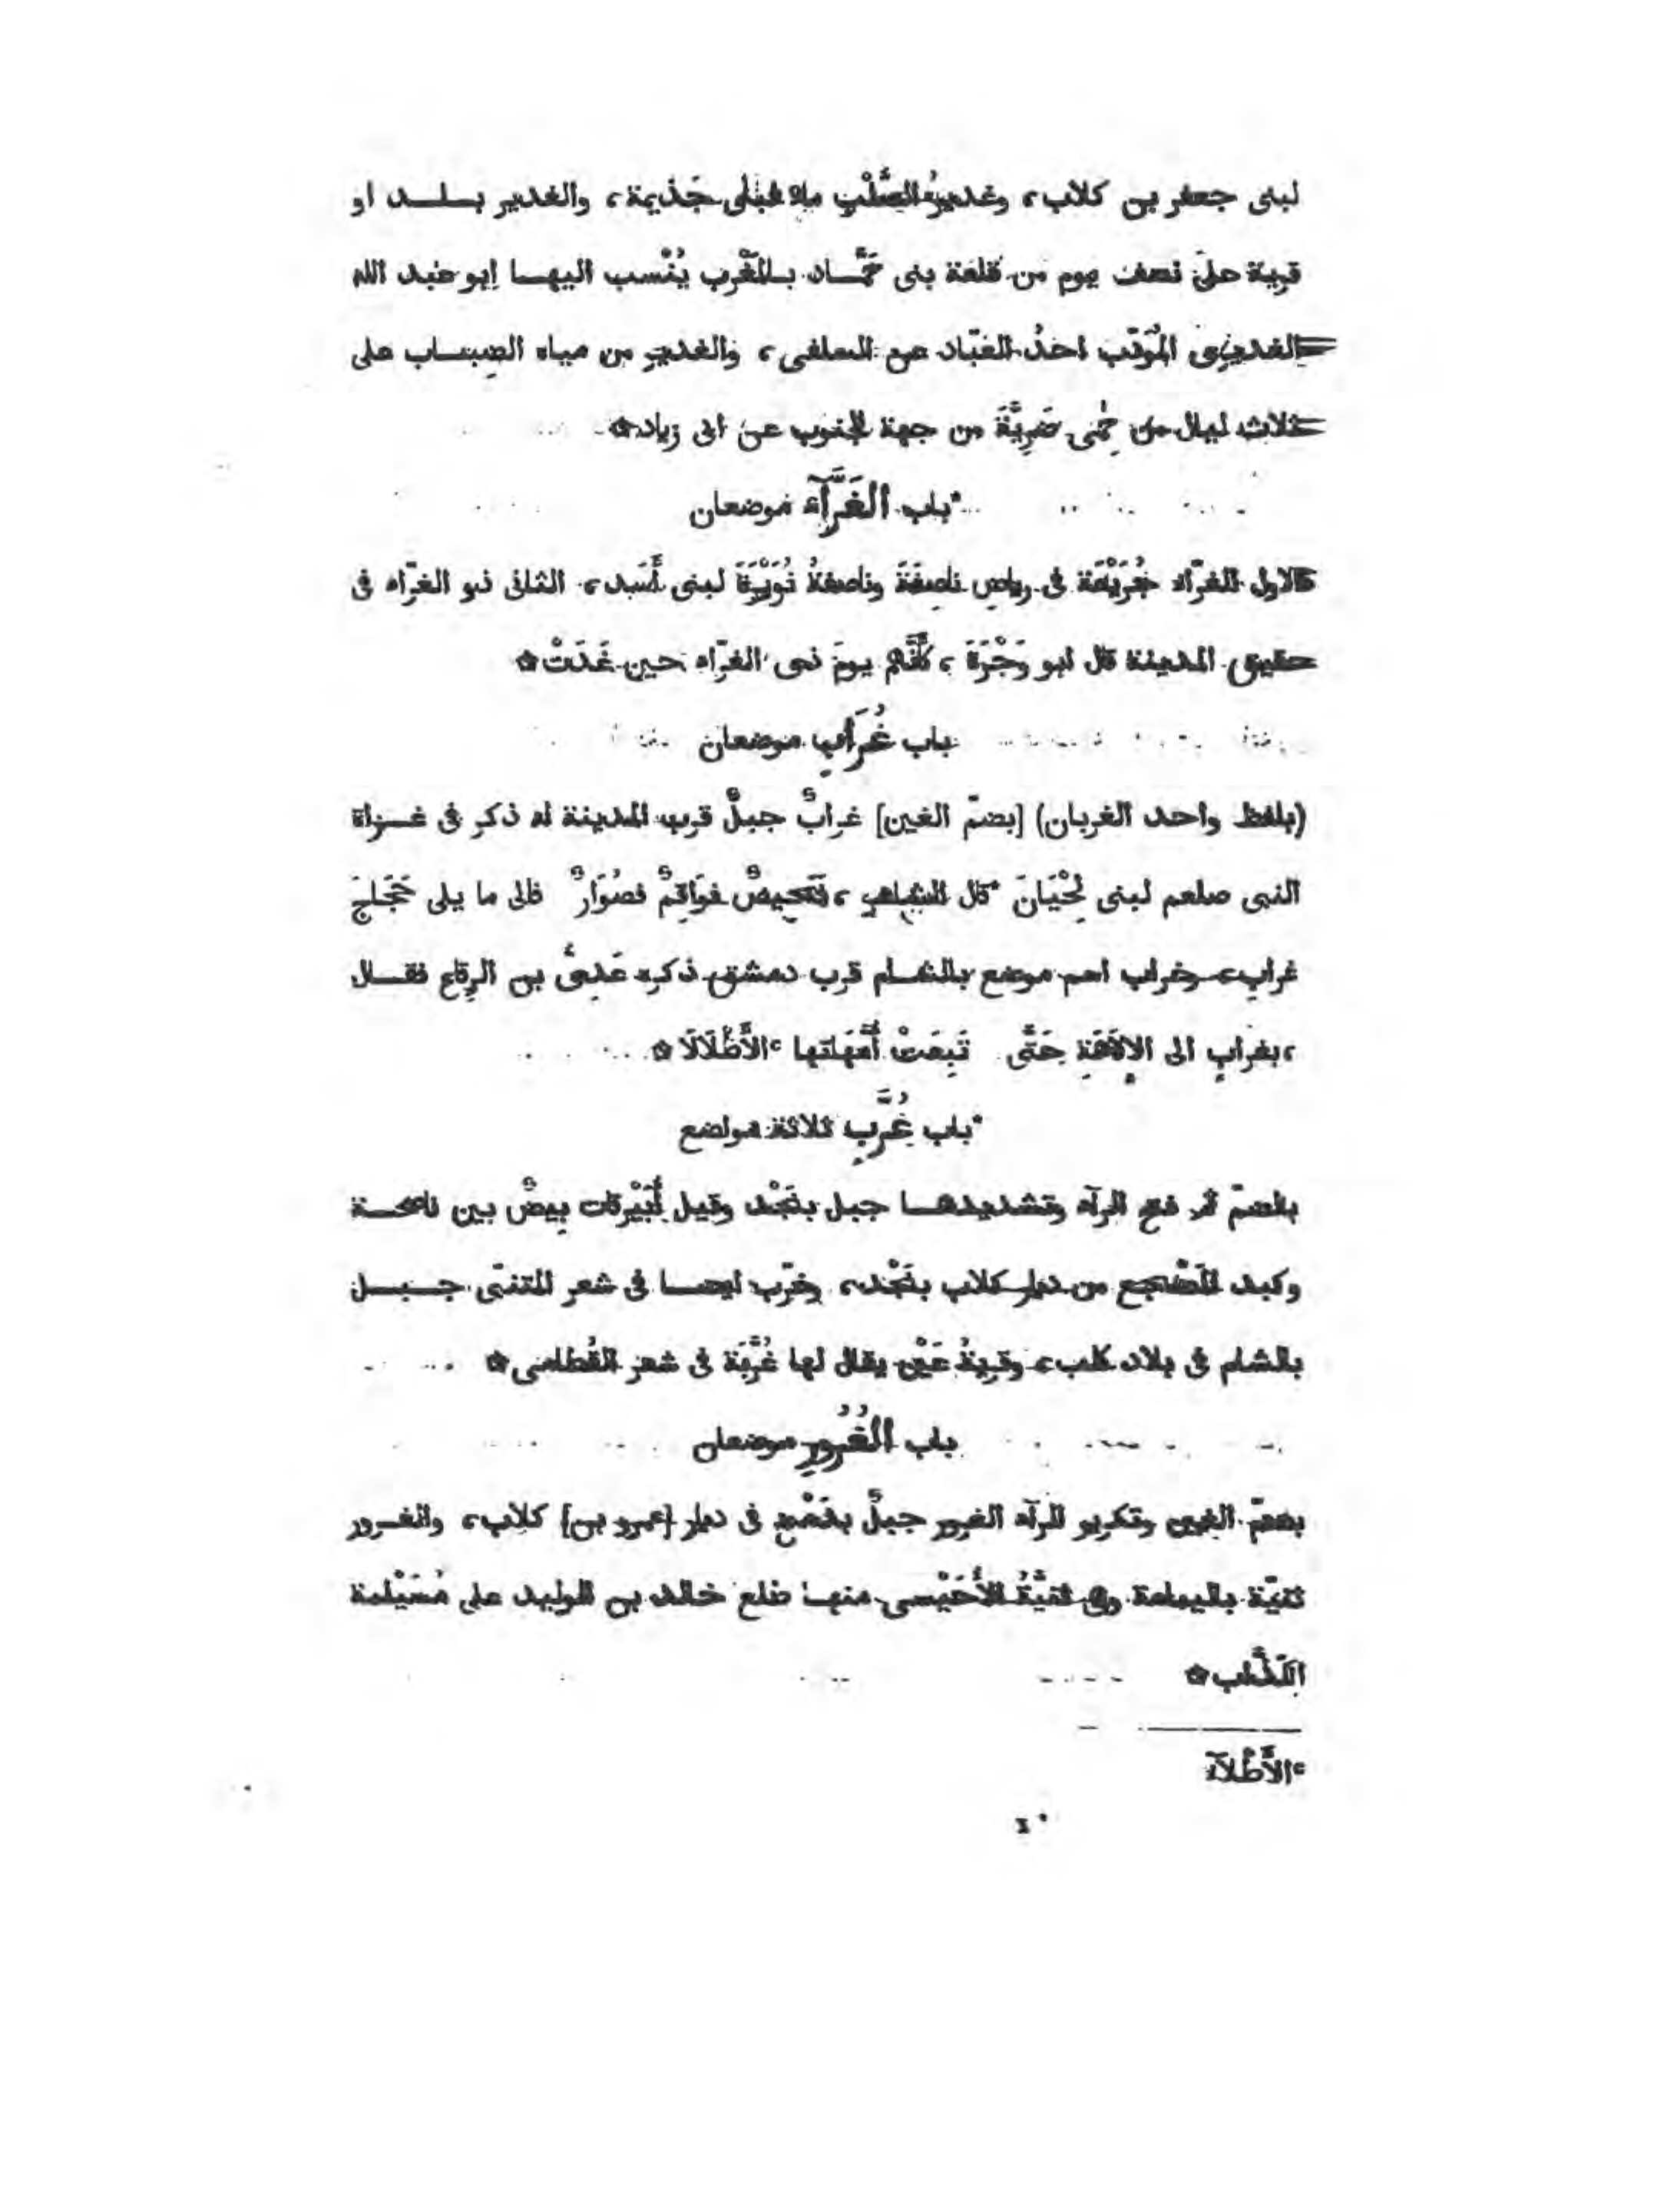 لبنى جعفر بن كلاب، وغديرُ الصُّلْبِ ماء لبنى جَذيمة، والغدير بلد او
قرية على نصف يوم من قلعة بنى حَمَّاد بالمَغْرب يُنْسب اليها ابو عبد الله
الغديرى المُوَدِّب احدُ العُبّاد عن السلفى، والغدير من مياه الضِباب على
ثلاث ليال من حِمَى ضَرِيَّةَ من جهة الجنوب عن ابى زياد ۞
*باب الغَرَّآءِ موضعان
الاول الغرّاء جُرَيْعَة فى رياض ناصِفَةَ وناصفةُ نُوَيْرَةَ لبنى أَسَد، الثانى ذو الغرّاء فى
عقيق المدينة قال ابو وَجْزَةَ، كأَنَّهم يومَ ذى الغرّاء حين غَدَتْ ۞
باب غُرَابٍ موضعان
(بلفظ واحد الغربان) [بضمّ الغين] غرابٌ جبلٌ قرب المدينة له ذكر فى غزاة
النبى صلعم لبنى لِحْيَانَ *قال الشاعر، فواقِمٌ فصُوَارٌ فالى ما يلى حَجَّاجَ
غرابِ، وغراب اسم موضع بالشام قرب دمشق ذكره عَدِىُّ بن الرِقاع فقال
، بغرابٍ الى الإلاهَةِ حَتَّى تَبِعَتْ أُمَّهَاتها ᶜالأَطْلَالَا ۞
*باب غُرَّبٍ ثلاثة مواضع
بالضمّ ثم فتح الرآء وتشديدها جبل بنَجْد وقيل أُبَيْرقات بِيضٌ بين ناصحة
وكبد المَضْجع من ديار كلاب بنَجْد، وغرّب ايضا فى شعر المتنبّى جبل
بالشام فى بلاد كلب، وقرية عَيْن يقال لها غُرَّبَة فى شعر القُطامى ۞
باب الغُرُورِ موضعان
بضمّ الغين وتكرير الرآء الغرور جبلٌ بدَمْخ فى ديار [عمرو بن] كلاب، والغرور
ثنيّة باليمامة وهى ثنيّةُ الأَحَيْسى منها طلع خالد بن الوليد على مُسَيْلمة
الكذّاب ۞
ᶜالأَطْلَآءَ